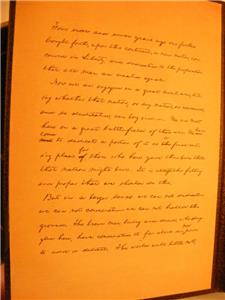 Four score and seven years ago our fathers
brought forth, upon this continent, a new nation, con-
ceived in Liberty, and dedicated to the proposition
that all men are created equal.
Now we are engaged in a great civil war, test-
ing whether that nation, or any nation, so conceived,
and so dedicated, can long endure. We are met
here on a great battlefield of that war. We have
come to dedicate a portion of it as the final rest-
ing place for those who here gave their lives that
that nation might live. It is altogether fitting
and proper that we should do this.
But in a larger sense we can not dedicate
we can not consecrate we can not hallow this
ground. The brave men living and dead, who strug-
gled here, have consecrated it far above our power
to add or detract. The world will little note,